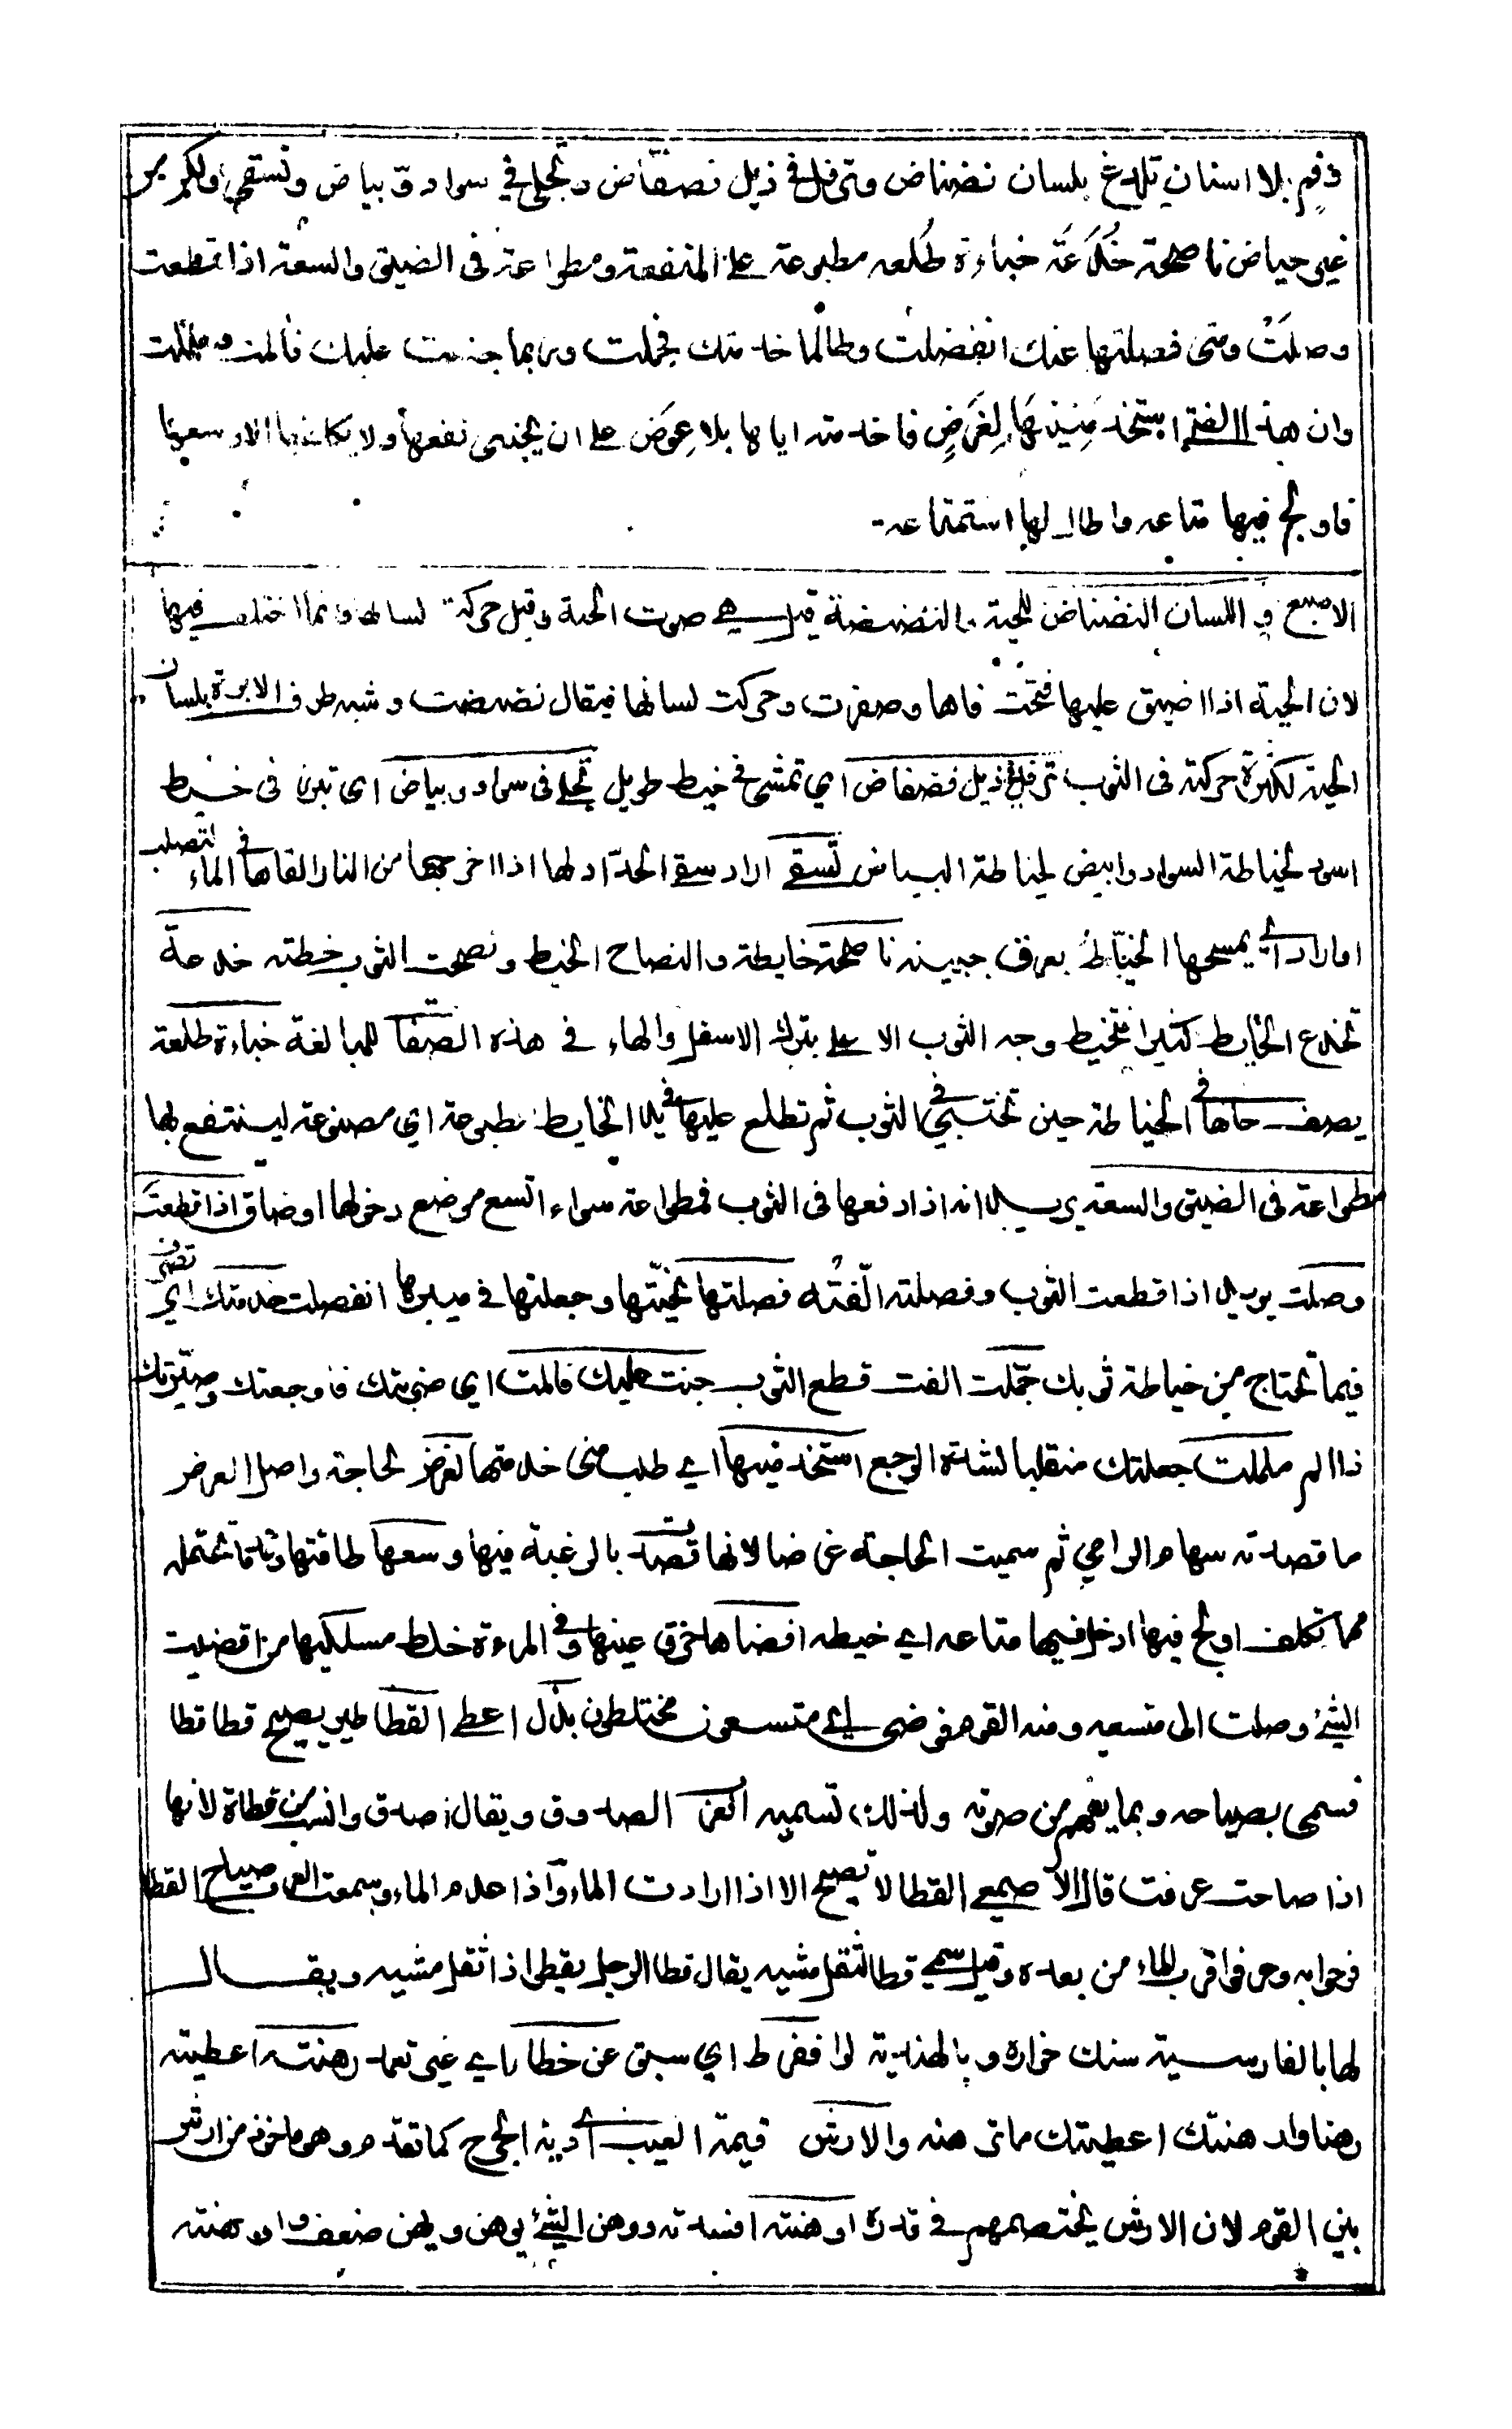 في فم بلا اسنان تلدغ بلسان نضناض وترفل في ذيل فضفاض وتجلى في سواد وبياض وتسقى ولكن من
غير حياض ناصحة خُدَعَة خبأة طُلعه مطبوعة على المنفعة ومطواعة في الضيق والسعة اذا قطعت
وصلَتْ ومتى فصلتها عنك انفصلت وطالما خدمتك فجملت وربما جنت عليك فالمت وململت
وان هذا الفتى استخدمنيها لِغَرَضٍ فاخدمته اياها بلا عِوَض على ان يجتني نفعها ولا يكلفها الا وسعها
فاولج فيها متاعه واطال لها استمتاعه
الاصبع اللسان النضناض للحية والنضنضة قيل هي صوت الحية وقيل حركة لسانها وانما اختلف فيهما
لان الحية اذا ضيق عليها فتحت فاها وصفرت وحركت لسانها فيقال نضنضت وشبه طرف الابرة بلسان
الحية لكثرة حركته في الثوب ترفل في ذيل فضفاض اي تمشي في خيط طويل تجلى في سواد وبياض اي تبرز في خيط
اسود لخياطة السواد وابيض لخياطة البياض تسقى اراد سقي الحدّاد لها اذا اخرجها من النار القاها في الماء لتصلب
او اراد يمسحها الخيّاط بعرق جبينه ناصحة خايطة والنصاح الخيط ونصحت الثوب خطته خدعة
تخدع الخايط كثيرا فتخيط وجه الثوب الاعلى بترك الاسفل والهاء في هذه الصفات للمبالغة خباءة طلعة
يصف حالها في الخياطة حين تختبئ في الثوب ثم تطلع عليها في يد الخايط مطبوعة اي مصنوعة لينتفع بها
مطواعة في الضيق والسعة يريد انه اذا دفعها في الثوب فمطواعة سواء اتسع موضع دخولها او ضاق اذا قطعت
وصلت يريد اذا قطعت الثوب وفصلته الّفته فصلتها نحّيتها وجعلتها في ميبرها انفصلت خدمتك اي تصرف
فيما تحتاج من خياطة ثوبك جمّلت الفت قطع الثوب جنت عليك فالمت اي ضربتك فاوجعتك وصيّرتك
ذا الم ململت جعلتك متقلبا لشدة الوجع استخدمنيها اي طلب مني خدمتها لغرض لحاجة واصل الغرض
ما قصدته سهام الرامي ثم سميت الحاجة غرضا لانها تقصد بالرغبة فيها وسعها طاقتها تحتمله
مما تكلف اولج فيها ادخل فيها متاعه اي خيطه افضاها خرق عينها وفي المرءة خلط مسلكيها من افضيت
الشئ وصلت الى متسعه ومنه القوم فوضى اي متسعون مختلطون بذل اعطى القطا طير يصيح قطا قطا
فسمى بصياحه وبما يفهم من صوته ولذلك تسميه العرب الصدوق ويقال اصدق وانسب من قطاة لانها
اذا صاحت عرفت قال الاصمعي القطا لا تصيح الا اذا ارادت الماء واذا عدم الماء وسمعت العرب صياح القطا
من بعده وقيل سمي قطا لثقل مشيه يقال قطا الرجل يقطو اذا ثقل مشيه ويقال
لها بالفارسية سنك خواره وبالهندية لوا ففرط اي سبق عن خطا اي غير تعمد رهنته اعطيته
رهنا وارهنتك اعطيتك ما ترهنه والارش قيمة العيب اي دية الجرح كما تقدم وهو ماخوذ من ارش
بين القوم لان الارش يختصمهم في قدره اوهنته افسدته ووهن الشئ يوهن ويهن ضعف واوهنته